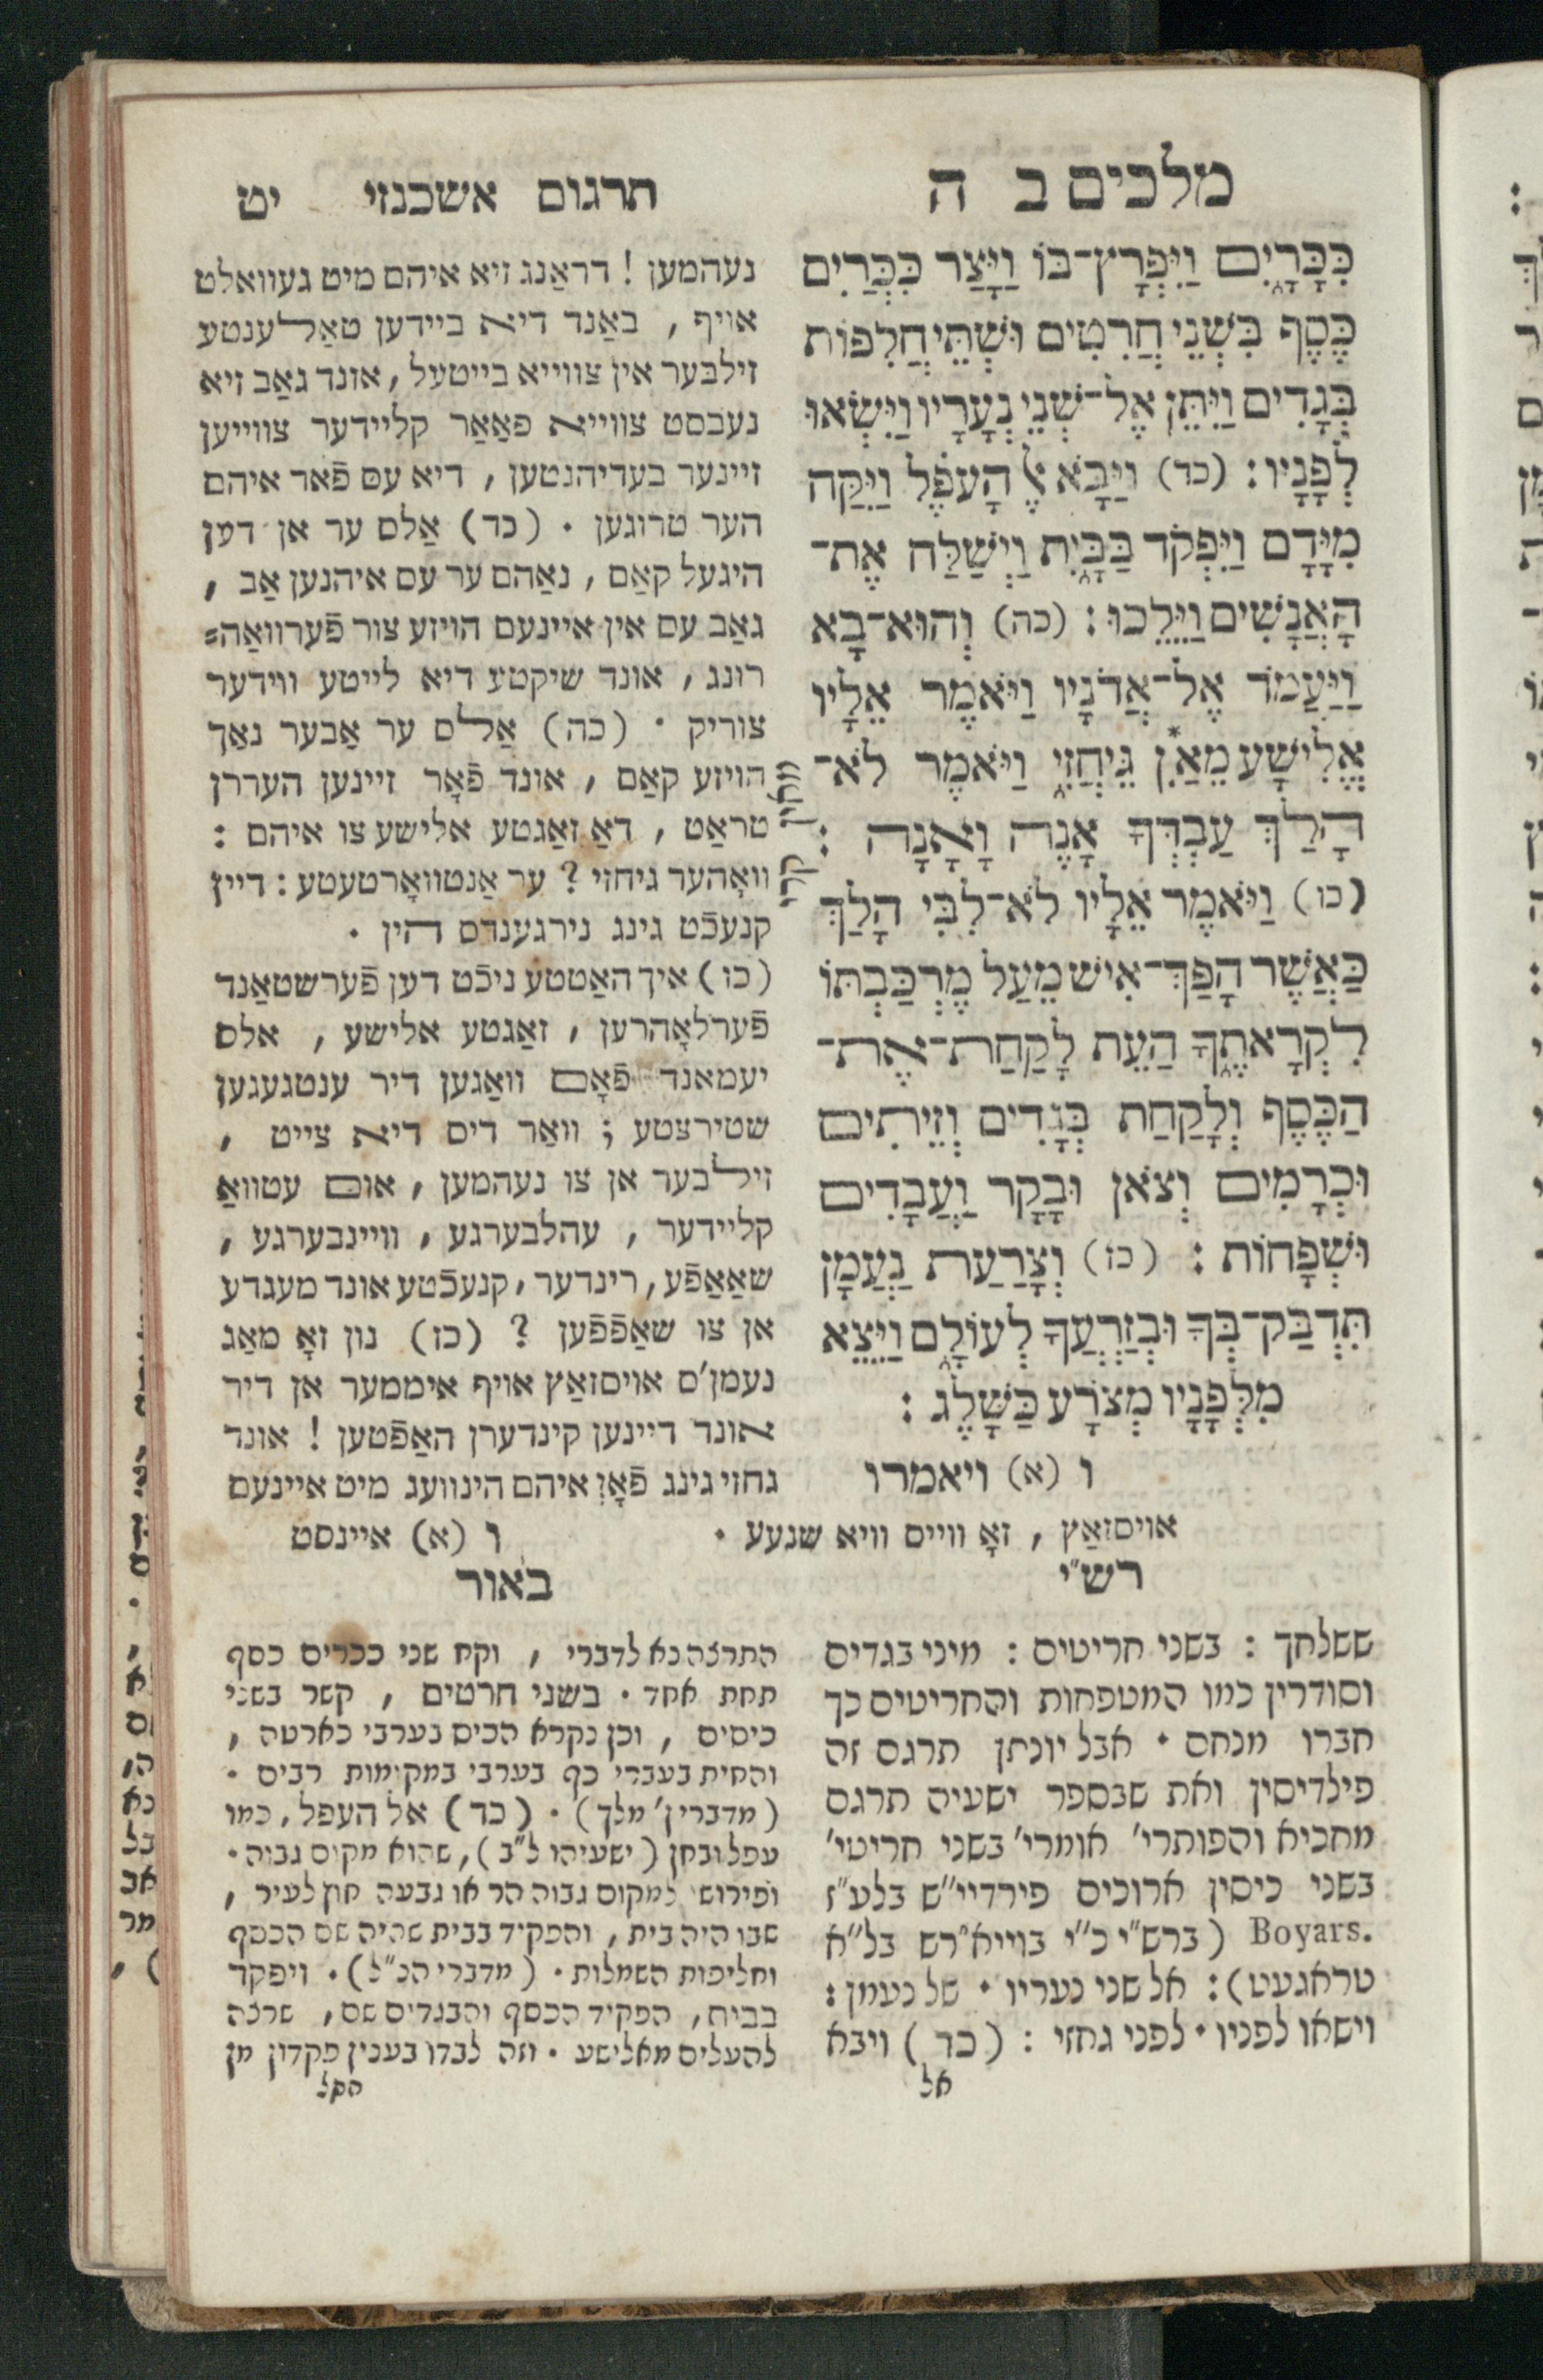 מלכים ב ה
כִּכָּרָיִם וַיִּפְרָץ־בּוֹ וַיָּצַר כִּכְּרַיִם
כֶּסֶף בִּשְׁנֵי חֲרִטִים וּשְׁתֵּי חֲלִפוֹת
בְּגָדִים וַיִּתֵּן אֶל־שְׁנֵי נְעָרָיו וַיִּשְׂאוּ
לְפָנָיו : (כד) וַיָּבֹא אֶל הָעֹפֶל וַיִּקַּח
מִיָּדָם וַיִּפְקֹד בַּבָּיִת וַיְשַׁלַּח אֶת־
הָאֲנָשִׁים וַיֵּלֵכוּ : (כה) וְהוּא־בָא
וַיַּעֲמֹד אֶל־אֲדֹנָיו וַיֹּאמֶר אֵלָיו
אֱלִישָׁע מֵאַ֯ן גֵּיחֲזִי וַיֹּאמֶר לֹא־
הָלַךְ עַבְדְּךָ אָנֶה וָאָנָה :
(כו) וַיֹּאמֶר אֵלָיו לֹא־לִבִּי הָלַךְ
כַּאֲשֶׁר הָפַךְ־אִישׁ מֵעַל מֶרְכַּבְתּוֹ
לִקְרָאתֶךָ הַעֵת לָקַחַת אֶת־
הַכֶּסֶף וְלָקַחַת בְּגָדִים וְזֵיתִים
וּכְרָמִים וְצֹאן וּבָקָר וַעֲבָדִים
וּשְׁפָחוֹת : (כז) וְצָרַעַת נַעֲמָן
תִּדְבַּק־בְּךָ וּבְזַרְעֲךָ לְעוֹלָם וַיֵּצֵא
מִלְּפָנָיו מְצֹרָע כַּשָּׁלֶג :
ו (א) ויאמרו
תרגום אשכנזי יט
נעהמען ! דראַנג זיא איהם מיט געוואלט
אויף , באַנד דיא ביידען טאַלענטע
זילבער אין צווייא בייטעל , אונד גאַב זיא
נעבסט צווייא פאַאַר קליידער צווייען
זיינער בעדיהנטען , דיא עס פֿאר איהם
הער טרוגען . (כד) אַלס ער אן דען
היגעל קאַם , נאַהם ער עס איהנען אַב ,
גאַב עס אין איינעם הויזע צור פֿערוואַה=
רונג , אונד שיקטע דיא לייטע ווידער
צוריק . (כה) אַלס ער אַבער נאַך
הויזע קאַם , אונד פֿאָר זיינען העררן
טראַט , דאַ זאַגטע אלישע צו איהם :
וואָהער גיחזי ? ער אַנטוואָרטעטע : דיין
קנעכֿט גינג נירגענדס הין .
(כו) איך האַטטע ניכֿט דען פֿערשטאַנד
פֿערלאָהרען , זאַגטע אלישע , אלס
יעמאנד פֿאָם וואַגען דיר ענטגעגען
שטירצטע ; וואַר דיס דיא צייט ,
זילבער אן צו נעהמען , אום עטוואַ
קליידער , עהלבערגע , וויינבערגע ,
שאַאַפֿע , רינדער , קנעכֿטע אונד מעגדע
אן צו שאַפֿפֿען ? (כז) נון זאָ מאַג
נעמן'ס אויסזאַץ אויף איממער אן דיר
אונד דיינען קינדערן האַפֿטען ! אונד
גחזי גינג פֿאָן איהם הינוועג מיט איינעם
אויסזאַץ , זאָ ווייס וויא שנעע . ו (א) איינסט
רש״י
ששלחך : בשני חריטים : מיני בגדים
וסודרין כמו המטפחות והחריטים כך
חברו מנחם . אבל יונתן תרגם זה
פילדיסין ואת שבספר ישעיה תרגם
מחכיא והפותרי' אומרי' בשני חריטי'
בשני כיסין ארוכים פירדיי״ש בלע״ז
Boyars. (ברש״י כ״י בוייא״רש בל״א
טראגעט) : אל שני נעריו . של נעמן :
וישאו לפניו . לפני גחזי : (כד) ויבא
אל
באור
התרצה נא לדברי , וקח שני ככרים כסף
תחת אחד . בשני חרטים , קשר בשני
כיסים , וכן נקרא הכיס בערבי כארטה ,
והחית בעברי כף בערבי במקומות רבים .
(מדברין' מלך) . (כד) אל העפל , כמו
עפל ובחן (ישעיהו ל״ב) , שהוא מקום גבוה .
ופירוש למקום גבוה הר או גבעה חוץ לעיר ,
שבו היה בית , והפקיד בבית שהיה שם הכסף
וחליפות השמלות . (מדברי הנ״ל) . ויפקד
בבית , הפקיד הכסף והבגדים שם , שרצה
להעלים מאלישע . וזה לבדו בענין פקדון מן
הקל